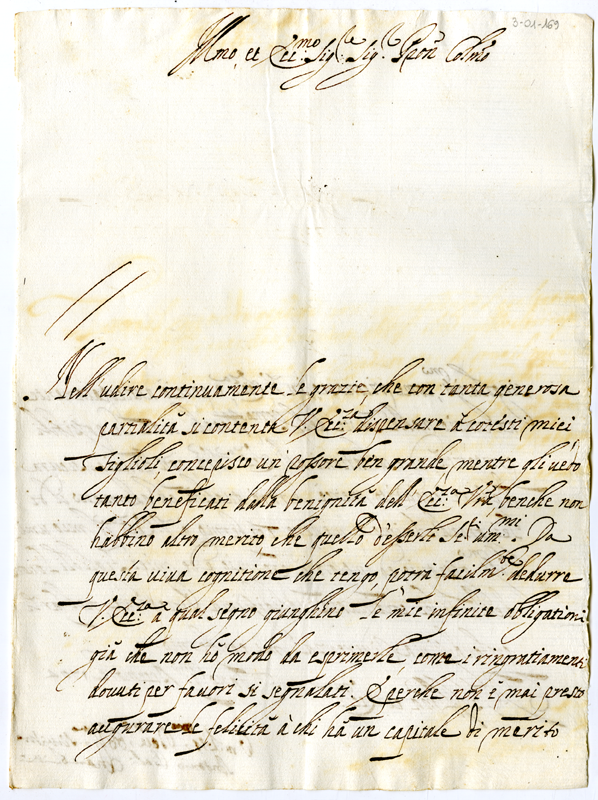 3-01-169
Illmo et Ecc:mo Sig:re Sig:re Pron Colmo
Nell'udire continuamente le grazie, che con tanta generosa
partialità si contenta V. Ecc:za dispensare à cotesti miei
figlioli, concepisco un rossore ben grande, mentre gli vedo
tanto beneficati dalla benignità dell' Ecc:za Vra, benche non
habbino altro merito, che quello d'esserle Se:ri um:mi. Da
questa viva cognitione che tengo, potrà facilm:te dedurre
V. Ecc:za à qual segno giunghino le mie infinite obligationi
già che non hò modo da esprimerle, come i ringratiamenti
dovuti per favori si segnalati. E perche non è mai presto
augurare le felicità à chi hà un capitale di merito